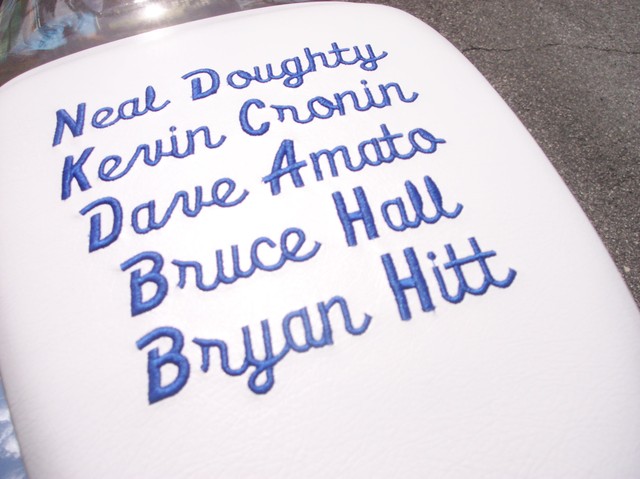 Neal Doughty
Kevin Cronin
Dave Amato
Bruce Hall
Bryan Hitt